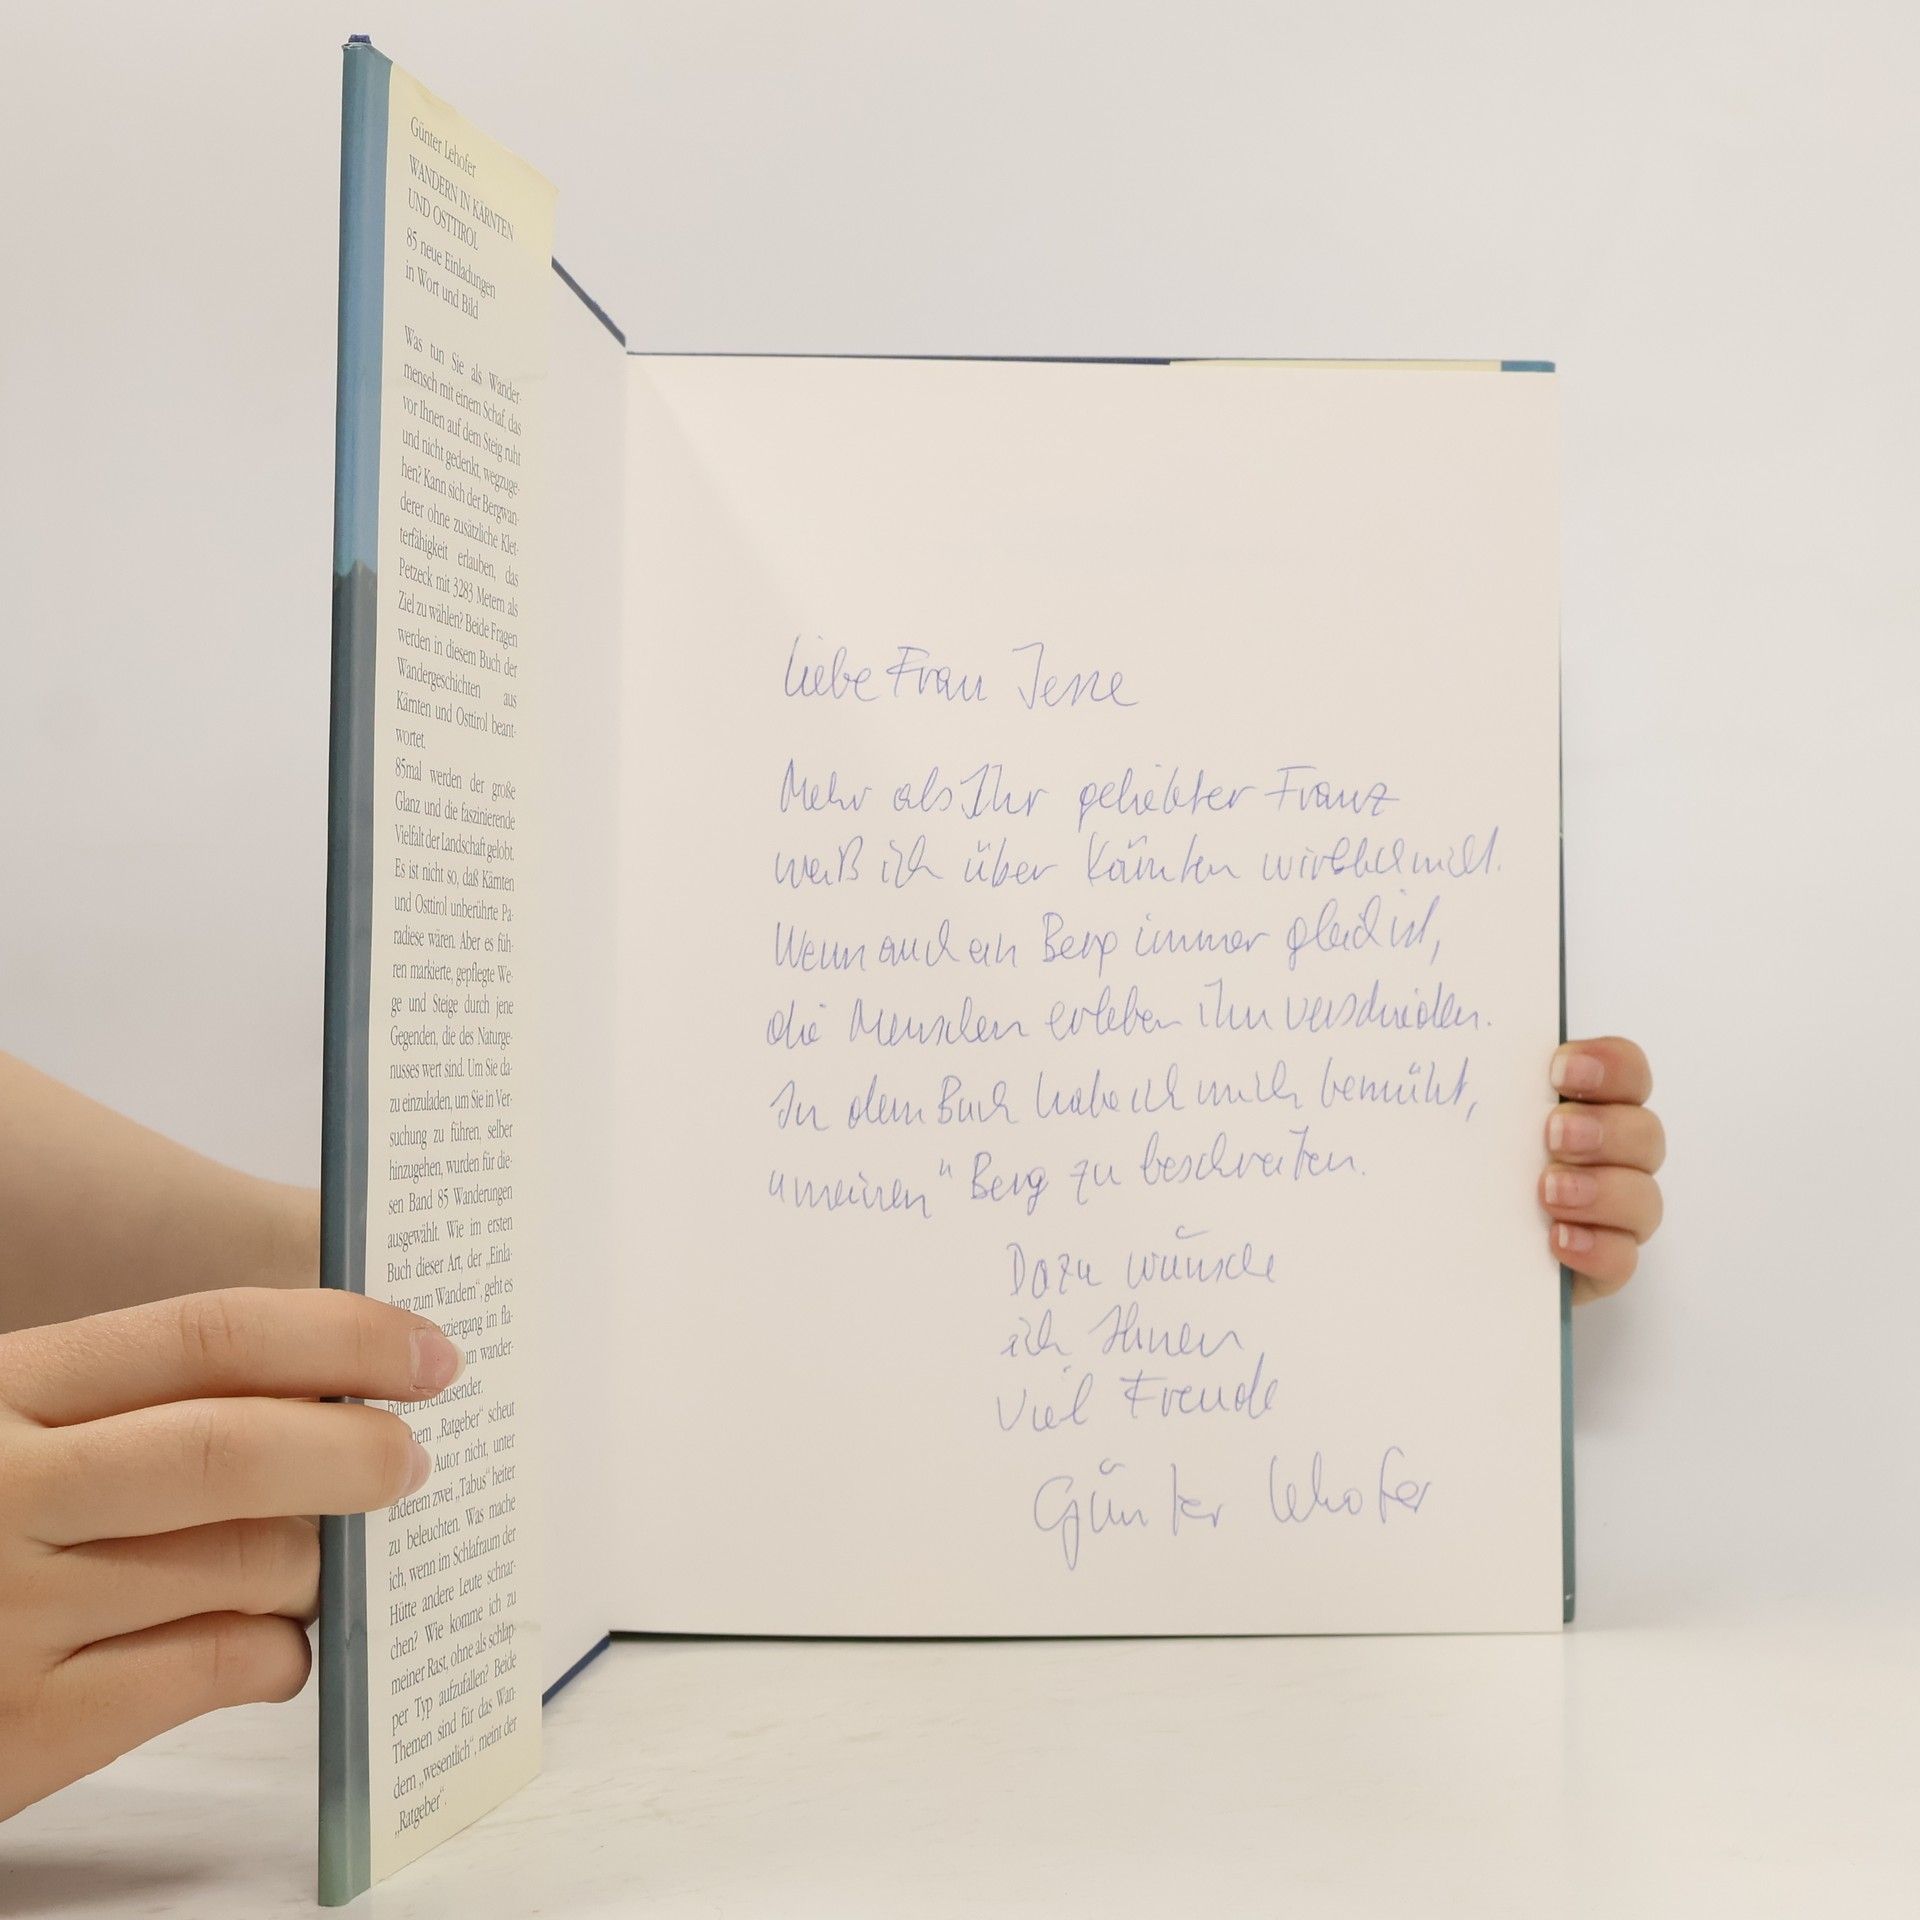 Günter Lehofer
WANDERN IN KÄRNTEN
UND OSTTIROL
85 neue Einladungen
in Wort und Bild
Was tun Sie als Wander-
mensch mit einem Schaf, das
vor Ihnen auf dem Steig ruht
und nicht gedenkt, wegzuge-
hen? Kann sich der Bergwan-
derer ohne zusätzliche Klet-
terfähigkeit erlauben, das
Petzeck mit 3283 Metern als
Ziel zu wählen? Beide Fragen
werden in diesem Buch der
Wandergeschichten aus
Kärnten und Osttirol beant-
wortet.
85mal werden der große
Glanz und die faszinierende
Vielfalt der Landschaft gelobt.
Es ist nicht so, daß Kärnten
und Osttirol unberührte Pa-
radiese wären. Aber es füh-
ren markierte, gepflegte We-
ge und Steige durch jene
Gegenden, die des Naturge-
nusses wert sind. Um Sie da-
zu einzuladen, um Sie in Ver-
suchung zu führen, selber
hinzugehen, wurden für die-
sen Band 85 Wanderungen
ausgewählt. Wie im ersten
Buch dieser Art, der „Einla-
dung zum Wandern“, geht es
aziergang im fla-
um wander-
baren Dreitausender.
nem „Ratgeber“ scheut
Autor nicht, unter
anderem zwei „Tabus“ heiter
zu beleuchten. Was mache
ich, wenn im Schlafraum der
Hütte andere Leute schnar-
chen? Wie komme ich zu
meiner Rast, ohne als schlap-
per Typ aufzufallen? Beide
Themen sind für das Wan-
dern „wesentlich“, meint der
„Ratgeber“.
Liebe Frau Jesse
Mehr als Ihr geliebter Franz
weiß ich über Kärnten wirklich nicht.
Wenn auch ein Berg immer gleich ist,
die Menschen erleben ihn verschieden.
In dem Buch habe ich mich bemüht,
"meinen" Berg zu beschreiben.
Dazu wünsche
ich Ihnen
viel Freude
Günter Lehofer